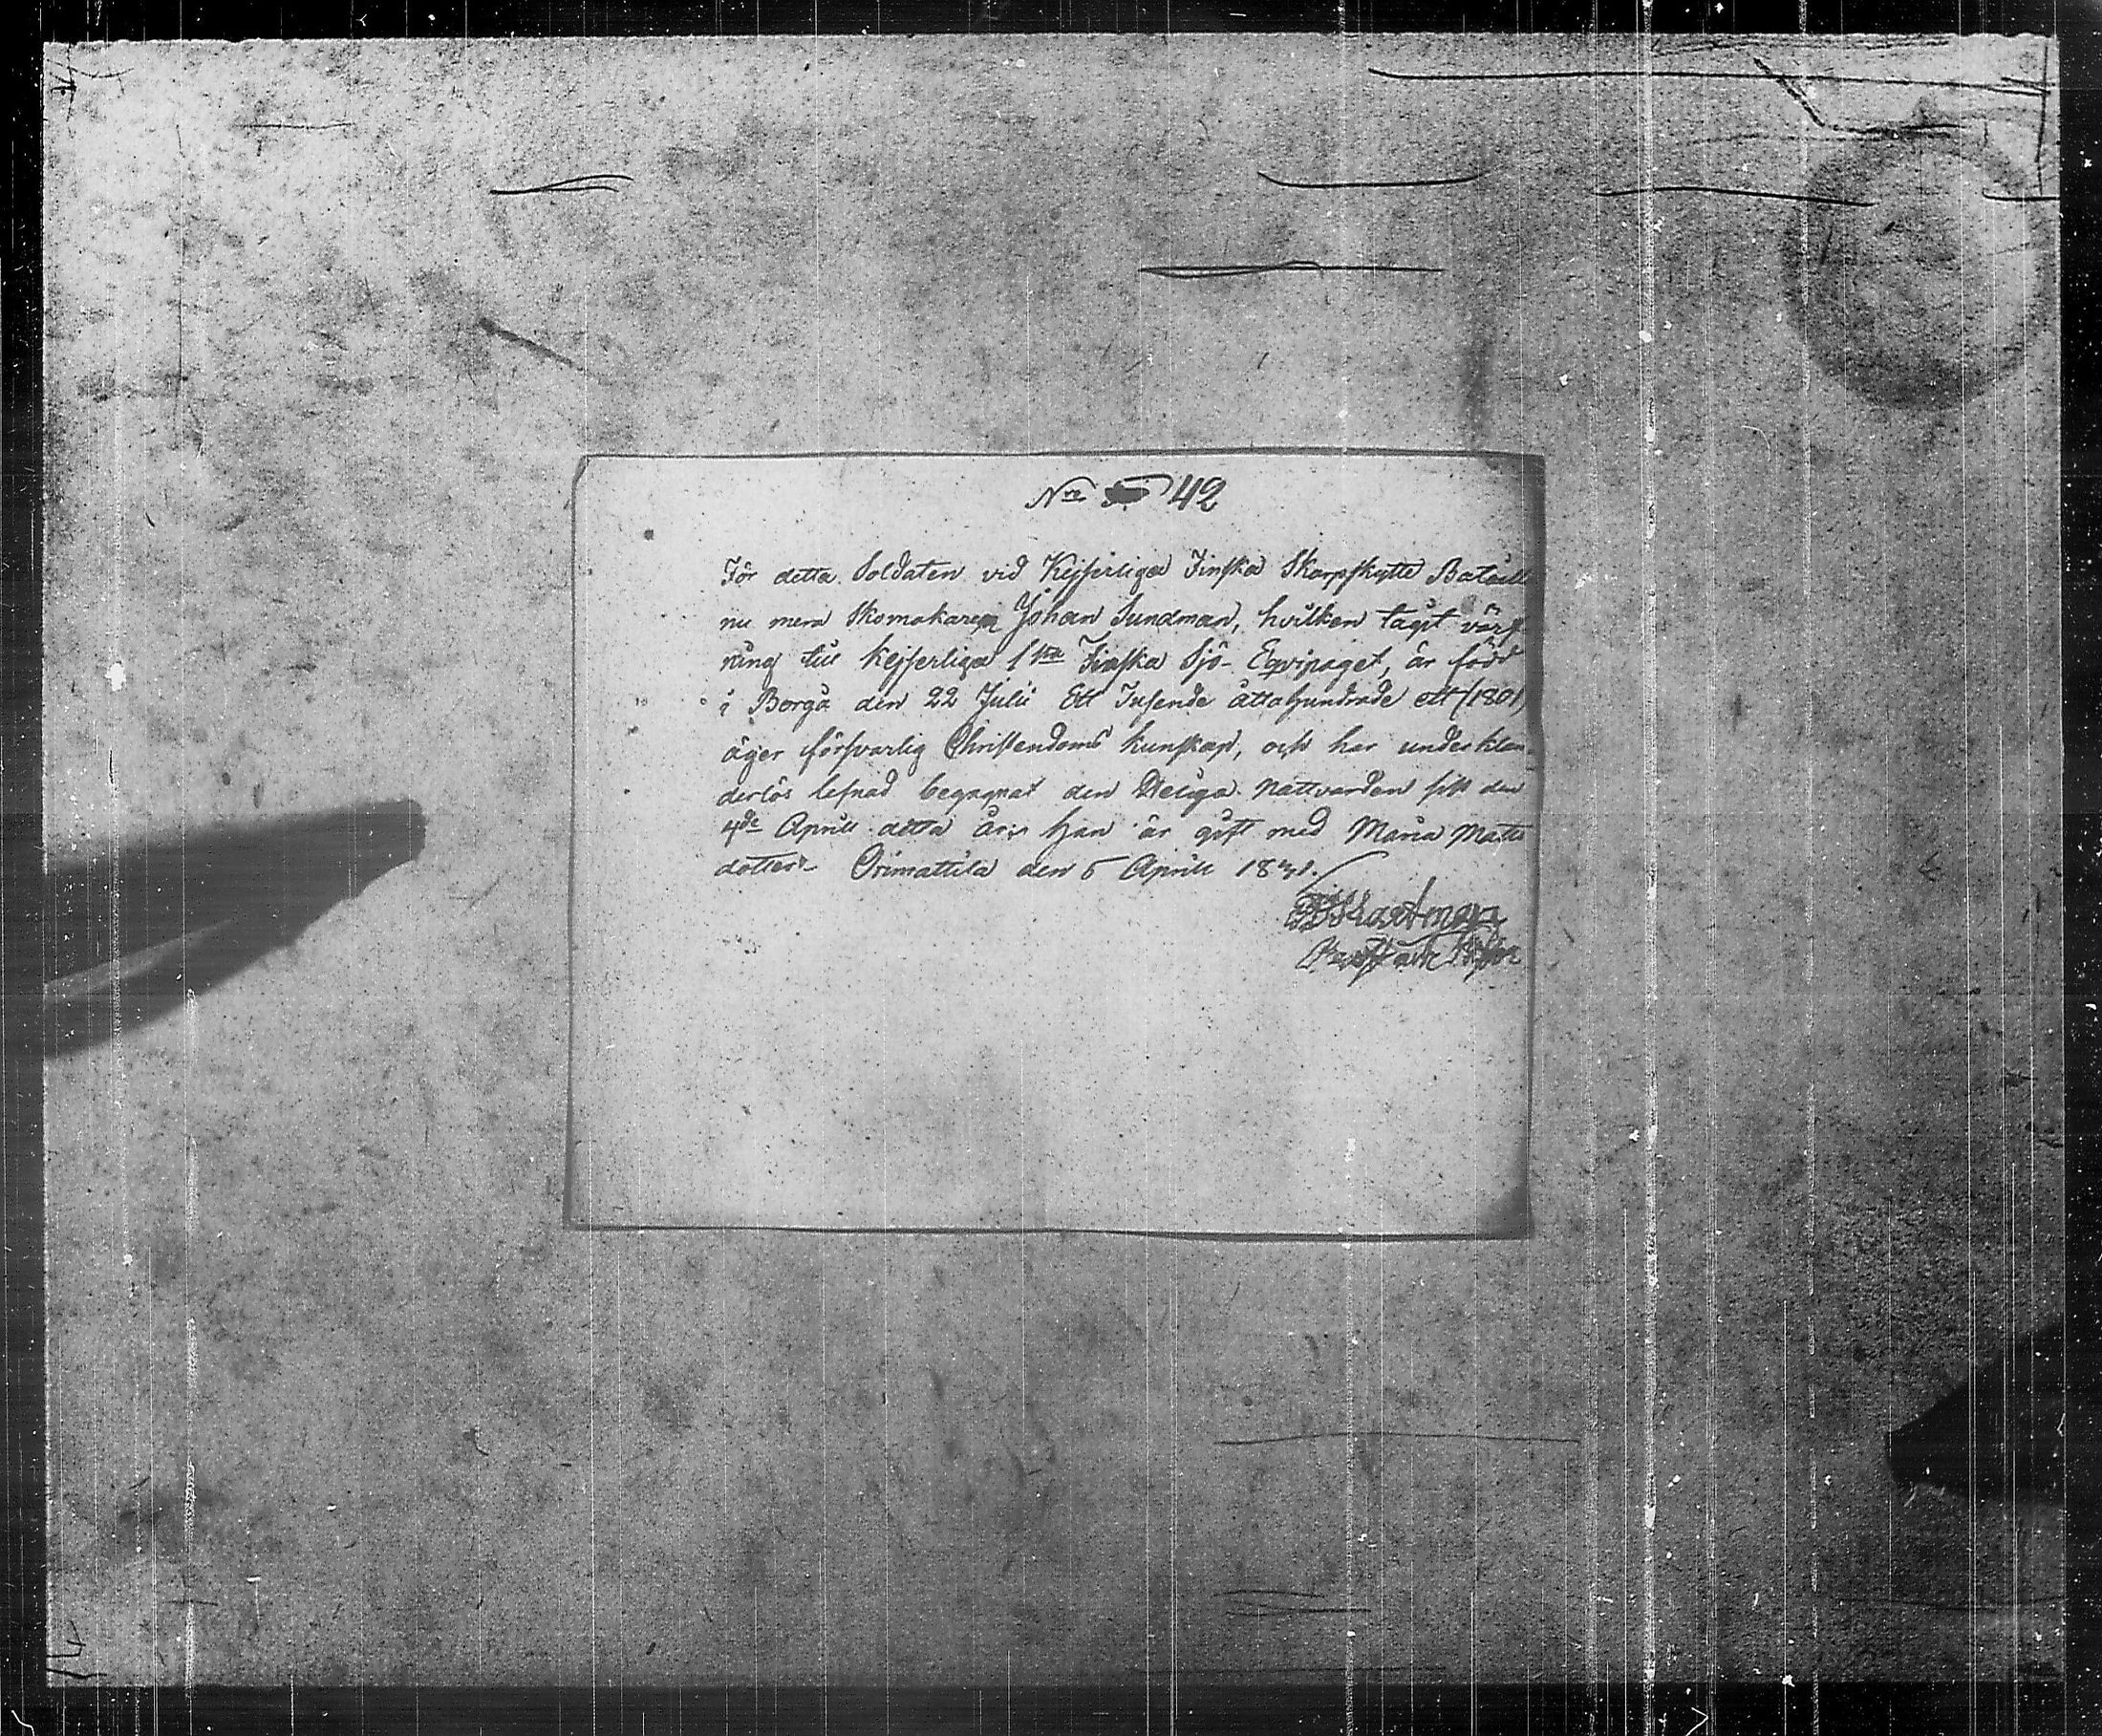 Nro 42
För detta Soldaten vid Kejserliga Finska Skarpskytte Bataill
nu mera Skomakaren Johan Sundman, hvilken tagit värf-
ning till Kejserliga 1sta Finska Sjö-Equipaget, är född
i Borgå den 22 Julii Ett Tusende åttahundrade ett (1801)
äger försvarlig Christendoms kunskap, och har under klan-
derlös lefnad begagnat den Heliga Nattvarden sist den
4de Aprill detta år. Han är gift med Maria Matts
dotter. Orimattila den 5 Aprill 1831.
Hartman
Prost och